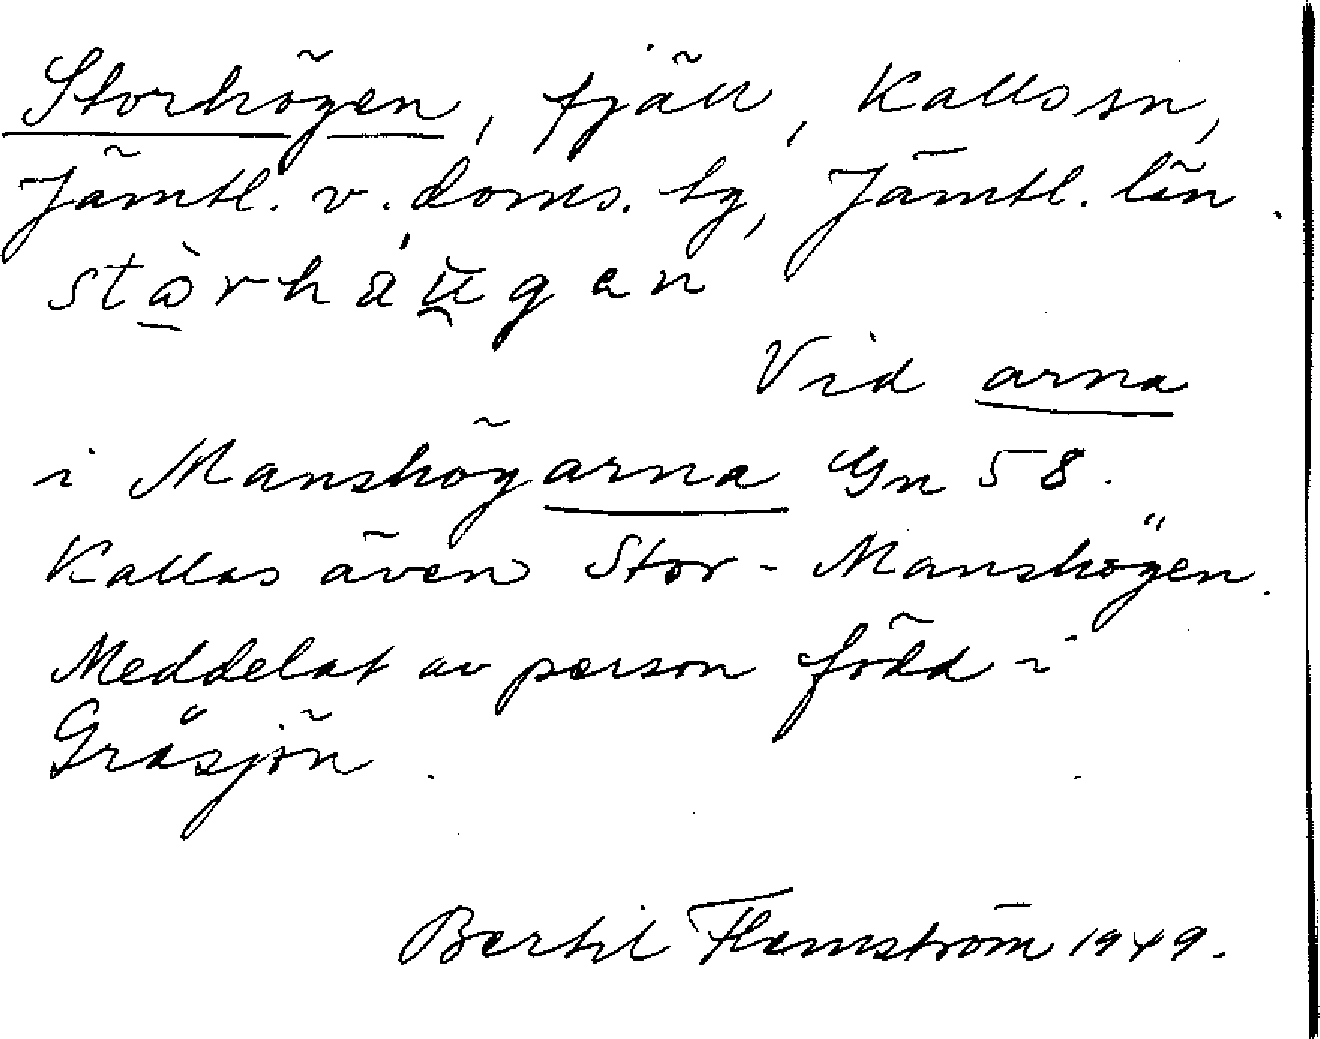 Storhögen, fjäll, Kalls sn,
Jämtl. v. doms. tg, Jämtl. län.
stòrháu̯gen
Vid arna
i Manshögarna Gn 58.
Kallas även Stor-Manshögen.
Meddelat av person född i
Gråsjön.
Bertil Flemström 1949.